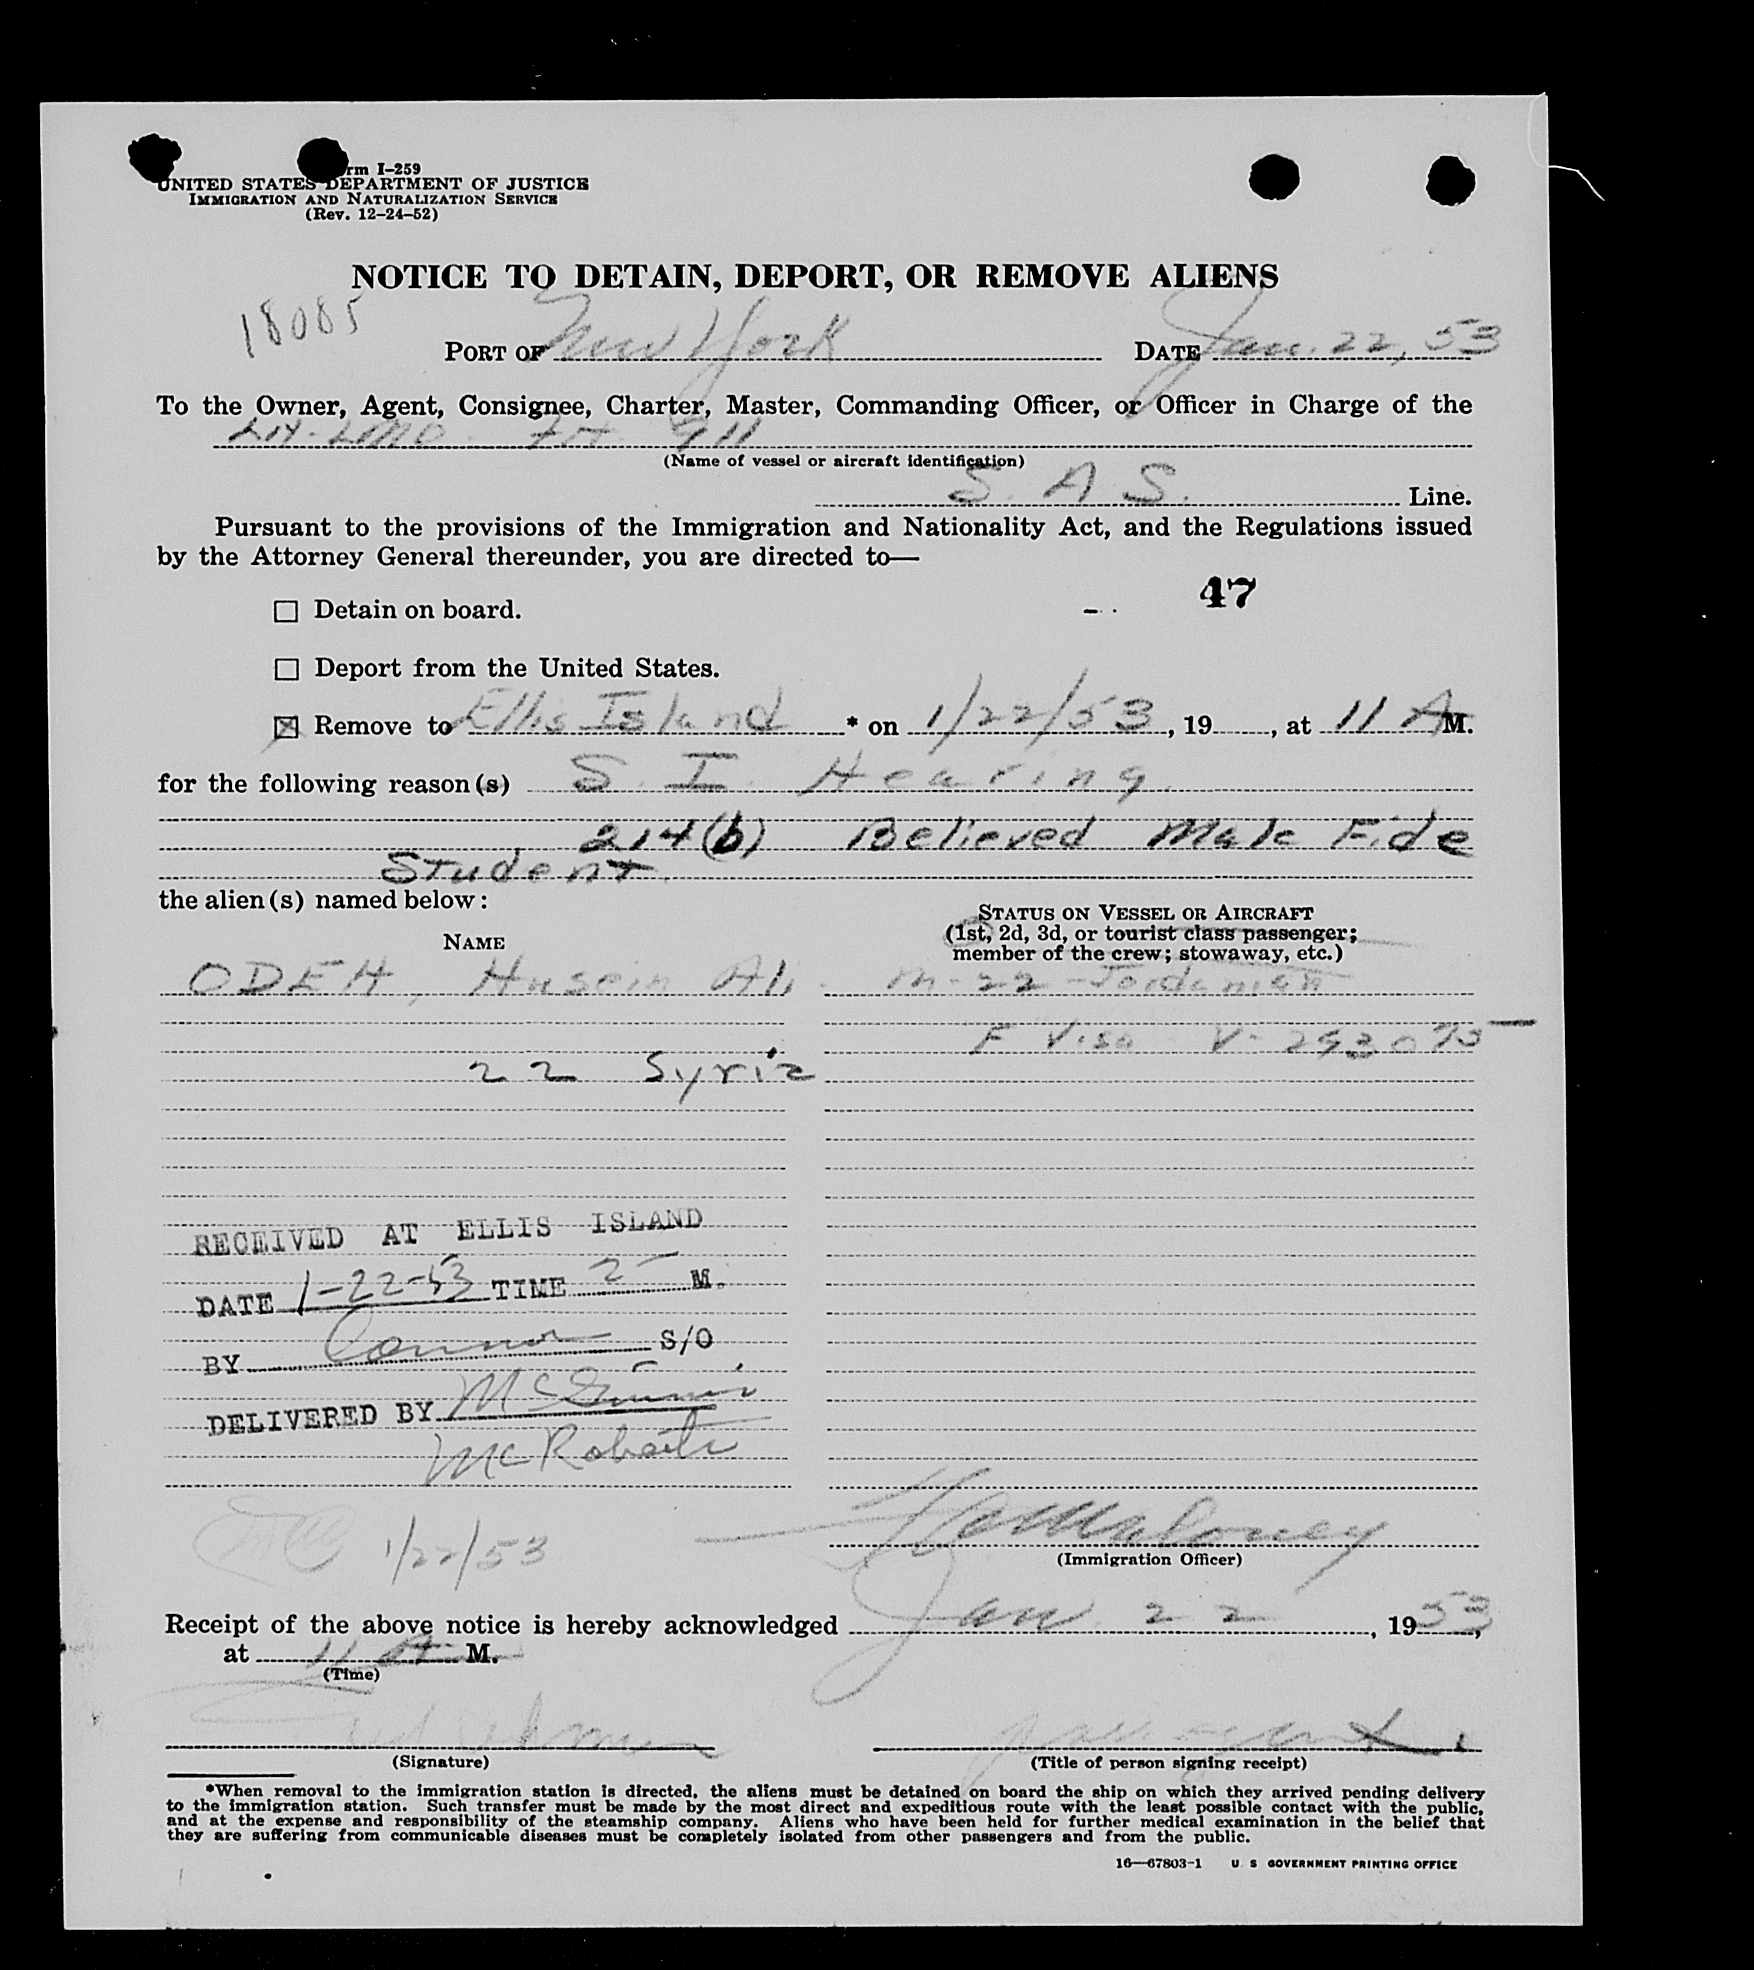 rm I-259
UNITED STATES DEPARTMENT OF JUSTICE
IMMIGRATION AND NATURALIZATION SERVICE
(Rev. 12-24-52)
NOTICE TO DETAIN, DEPORT, OR REMOVE ALIENS
18085
PORT OF New York DATE Jan. 22, 53
To the Owner, Agent, Consignee, Charter, Master, Commanding Officer, or Officer in Charge of the
911
(Name of vessel or aircraft identification)
S. A S. Line.
Pursuant to the provisions of the Immigration and Nationality Act, and the Regulations issued
by the Attorney General thereunder, you are directed to—
47
☐ Detain on board.
☐ Deport from the United States.
☒ Remove to Ellis Island * on 1/22/53, 19, at 11 A M.
for the following reason(s) S. I. Hearing
214(b) Believed Mala Fide
Student.
the alien(s) named below:
NAME
STATUS ON VESSEL OR AIRCRAFT
(1st, 2d, 3d, or tourist class passenger;
member of the crew; stowaway, etc.)
ODEH, Husein Ali M-22-Jordanian
F Visa V-293075
22 Syria
RECEIVED AT ELLIS ISLAND
DATE 1-22-53 TIME 2 M.
BY Connor S/O
DELIVERED BY McGinnis
McRoberts
1/22/53
Maloney
(Immigration Officer)
Receipt of the above notice is hereby acknowledged Jan. 22, 1953,
at 11 A M.
(Time)
(Signature)
(Title of person signing receipt)
*When removal to the immigration station is directed, the aliens must be detained on board the ship on which they arrived pending delivery
to the immigration station. Such transfer must be made by the most direct and expeditious route with the least possible contact with the public,
and at the expense and responsibility of the steamship company. Aliens who have been held for further medical examination in the belief that
they are suffering from communicable diseases must be completely isolated from other passengers and from the public.
16—67803-1 U S GOVERNMENT PRINTING OFFICE